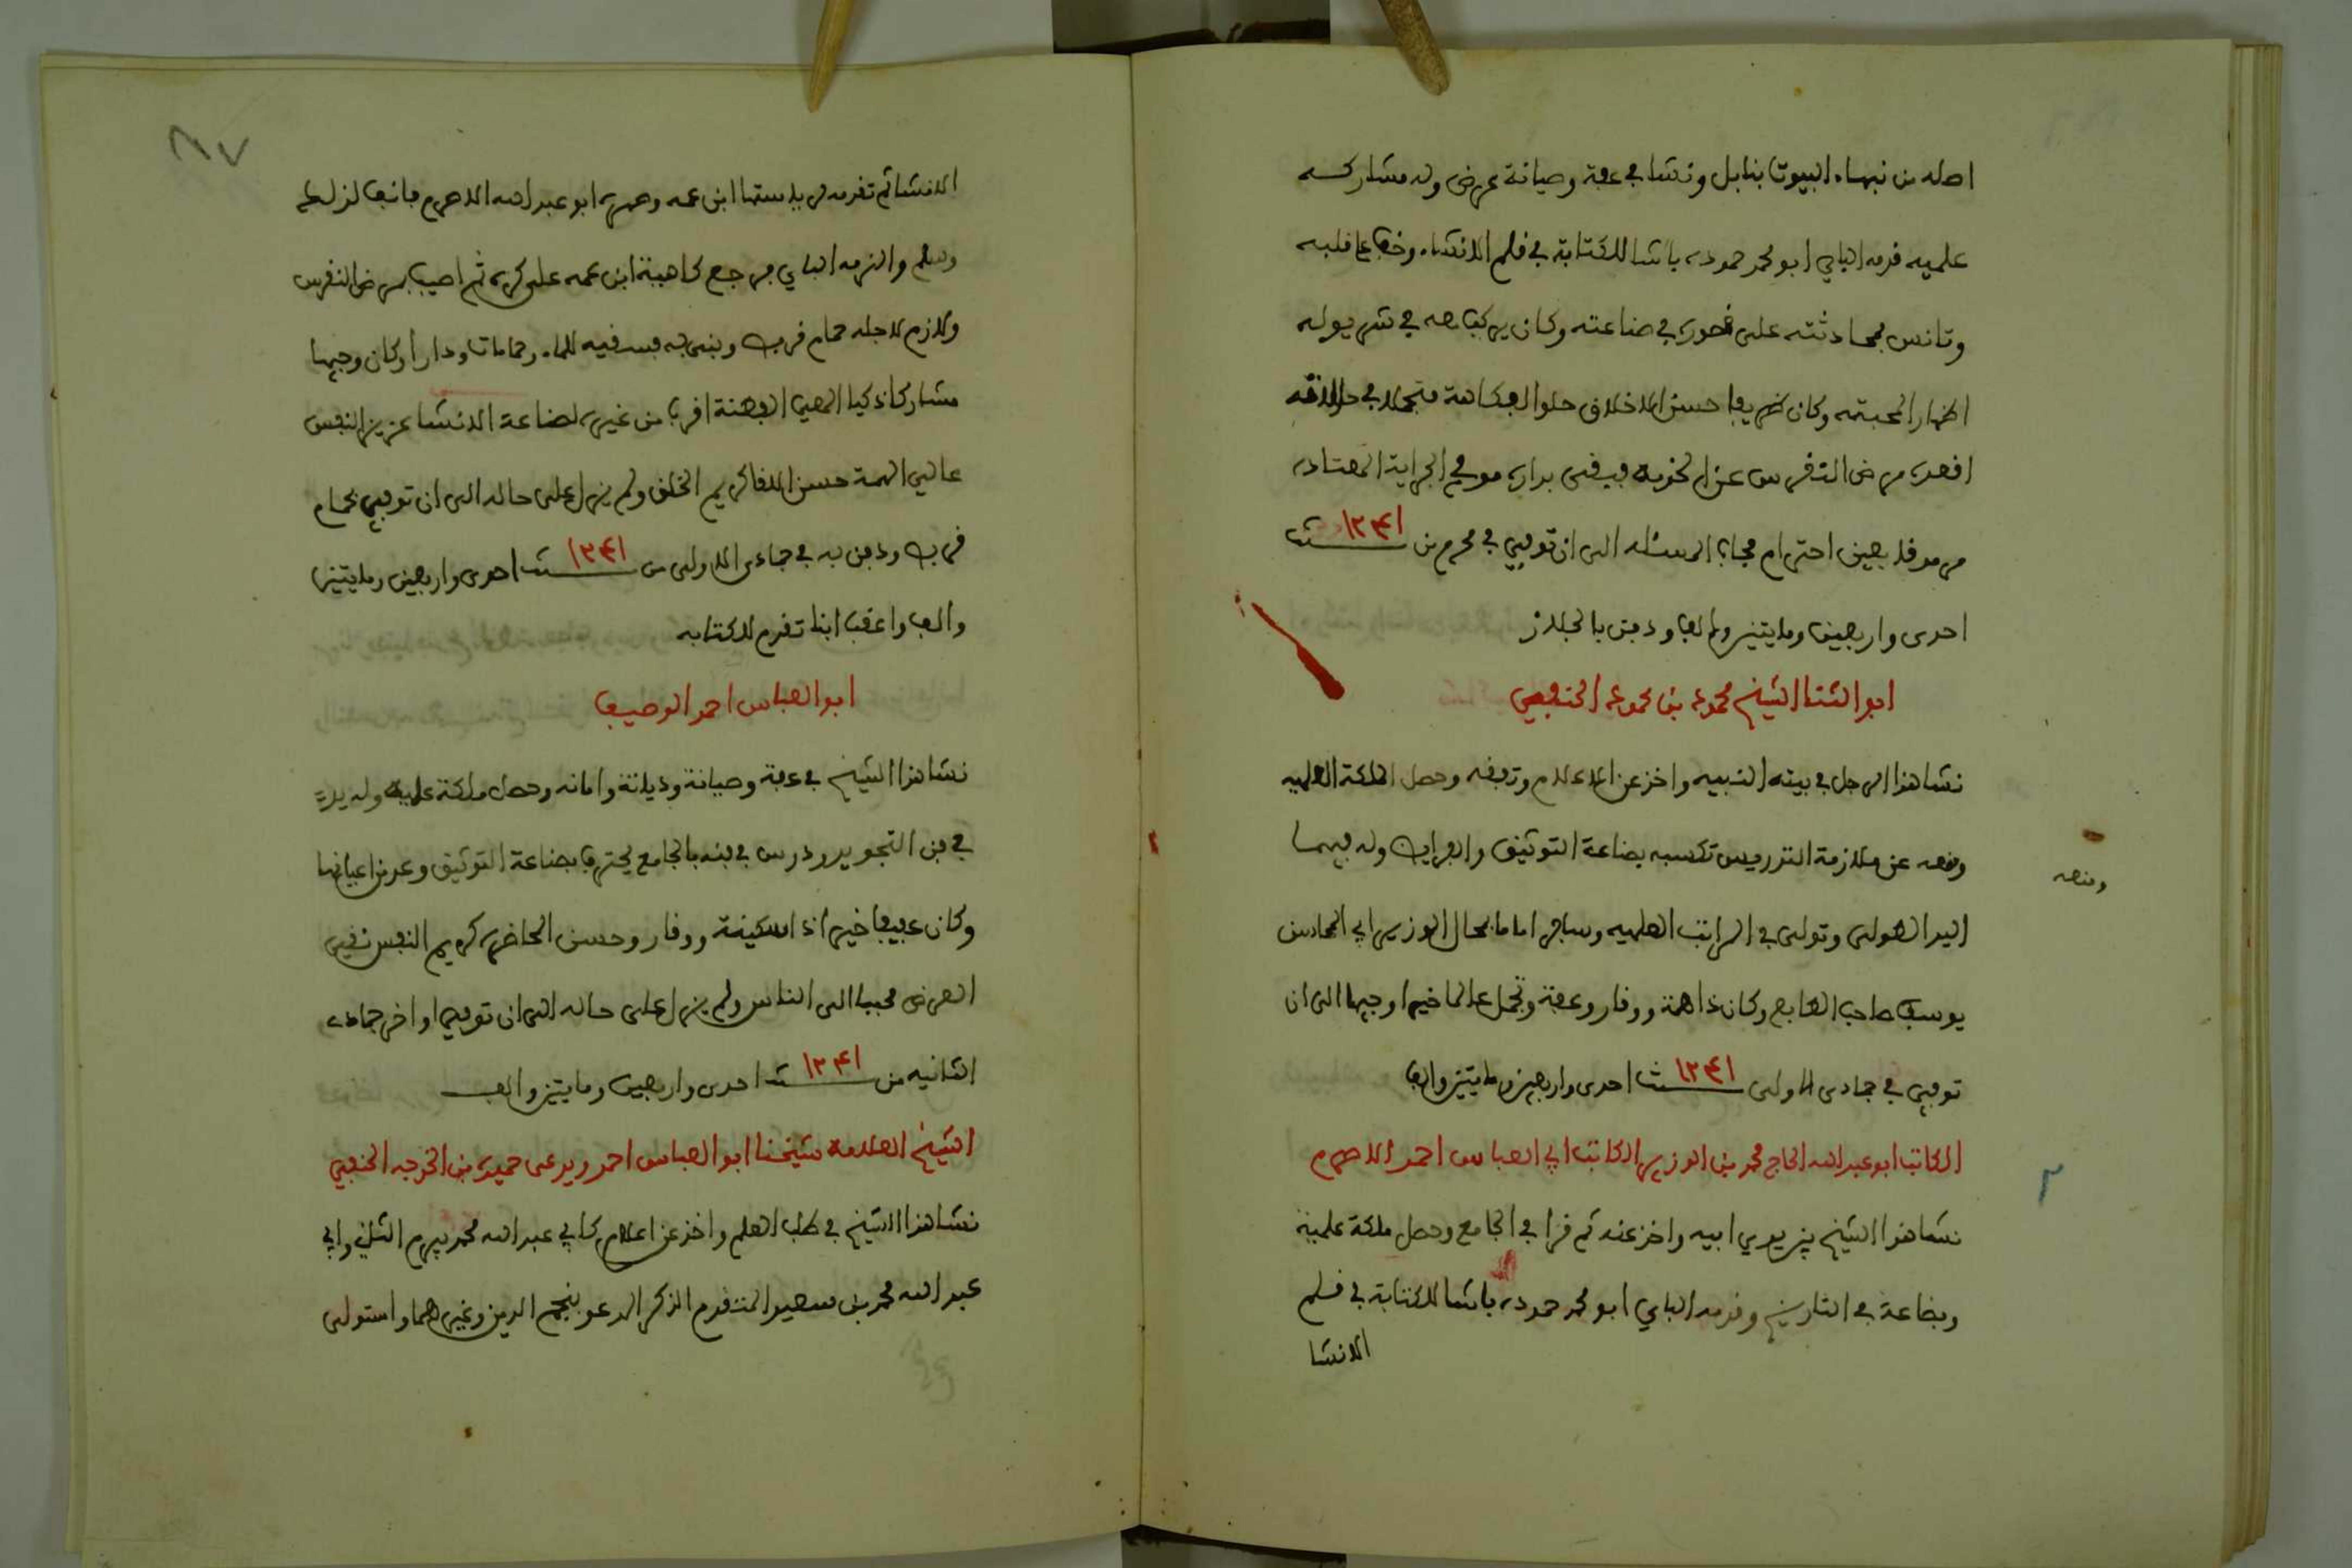 اصله من نبهاء البيوتا بنابل ونشا في عفة وصيانة عرض وله مشاركه
علميه قدمه الباي ابو محمد حموده باشا للكتابة في قلم الانشاء وخف على قلبه
وتانس بمحادثته على قصوره في صناعته وكان يركب معه في شريوله
اظهارا لمحبته وكان ظريفا حسن الاخلاق حلو الفكاهة متجملا في حالاته
اقعده مرض النقرس عن الخدمة فبقى بداره موفى الجراية المعتاده
مرموقا بعين احترام مجاب المسئله الى ان توفي في محرم من سنة ١٢٤١
احدى واربعين ومايتين والف ودفن بالجلاز
ابو الثنا الشيخ محمود بن محمود الحنفي
نشا هذا الرجل في بيته النبيه واخذ عن الاعلام وتفقه وحصل الملكة العلميه
ومنعه عن ملازمة التدريس تكسبه بصناعة التوثيق والفرايض وله فيهما
ومنعه
اليد الطولى وتولى في المراتب العلميه وسافر اماما بمحال الوزير ابي المحاسن
يوسف صاحب الطابع وكان ذا همة ووقار وعفة وتجمل عالما خيرا وجيها الى ان
توفي في جمادى الاولى سنة ١٢٤١ احدى واربعين ومايتين والف
الكاتب ابو عبد الله الحاج محمد بن الوزير الكاتب ابي العباس احمد الاصرم
نشا هذا الشيخ بين يدي ابيه واخذ عنه ثم قرا في الجامع وحصل ملكة علمية
وبضاعة في التاريخ وقدمه الباي ابو محمد حموده باشا للكتابة في قلم
الانشا
٨٧
الانشا ثم تقدم لرياستها ابن عمه وصهره ابو عبد الله الاصرم فانف لذلك
وسلم والزمه الباي فرجع كاهية ابن عمه على كره ثم اصيب بمرض النقرس
ولازم لاجله حمام قربص وبنى به فسقيه للماء وحمامات ودارا وكان وجيها
مشاركا ذكيا المعي الفطنة اقرب من غيره لصناعة الانشا عزيز النفس
عالي الهمة حسن اللقا كريم الخلق ولم يزل على حاله الى ان توفي بحمام
قربص ودفن به في جمادى الاولى من سنة ١٢٤١ احدى واربعين ومايتين
والف واعقب ابنا تقدم للكتابه
ابو العباس احمد الوصيف
نشا هذا الشيخ في عفة وصيانة وديانة وامانه وحصل ملكة علمية وله يد
في فن التجويد ودرس في فنه بالجامع يحترف بصناعة التوثيق وعد من اعيانها
وكان عفيفا خيرا ذا سكينة ووقار وحسن المحاضره كريم النفس نقي
العرض محببا الى الناس ولم يزل على حاله الى ان توفي اواخر جمادى
الثانيه من سنة ١٢٤١ احدى واربعين ومايتين والف
الشيخ العلامة شيخنا ابو العباس احمد ويدعى حميده بن الخوجه الحنفي
نشا هذا الشيخ في طلب العلم واخذ عن اعلام كابي عبد الله محمد بيرم الثاني وابي
عبد الله محمد بن سعيد المتقدم الذكر المدعو بنجم الدين وغيرهما واستولى